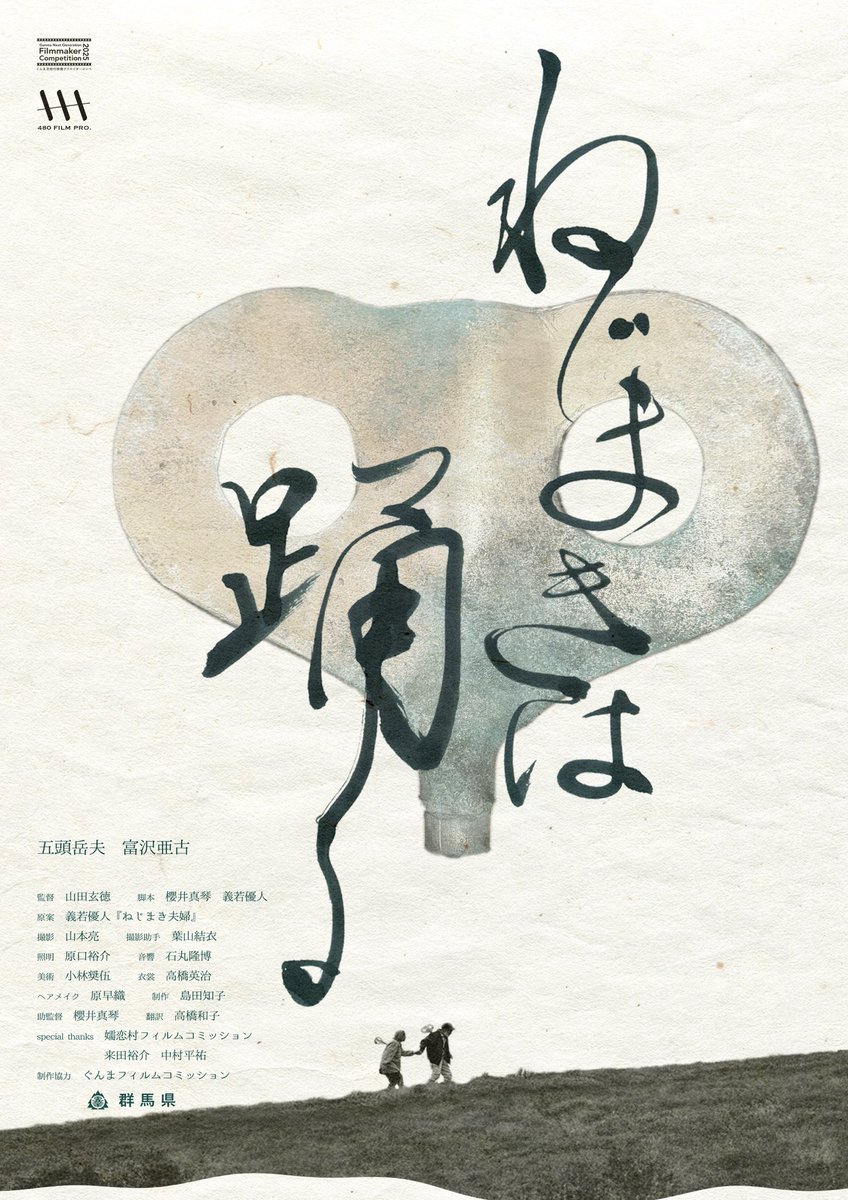 Gunma Next Generation
Filmmaker
Competition
2025
ぐんま次世代映像クリエイターコンペ
480 FILM PRO.
ねじまきは
踊る
五頭岳夫　富沢亜古
監督　山田玄徳　脚本　櫻井真琴　義若優人
原案　義若優人『ねじまき夫婦』
撮影　山本亮　撮影助手　葉山結衣
照明　原口裕介　音響　石丸隆博
美術　小林奬伍　衣裳　高橋英治
ヘアメイク　原早織　制作　島田知子
助監督　櫻井真琴　翻訳　高橋和子
special thanks　嬬恋村フィルムコミッション
来田裕介　中村平祐
制作協力　ぐんまフィルムコミッション
群馬県